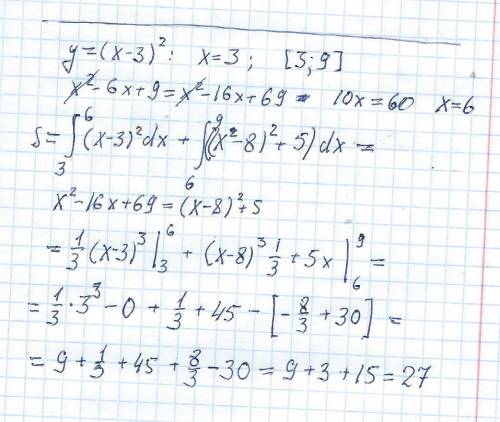 y=(x-3)²: x=3; [3;9]
x²-6x+9=x²-16x+69 10x=60 x=6
S=∫₃⁶(x-3)²dx + ∫₆⁹((x-8)²+5)dx =
x²-16x+69=(x-8)²+5
=1/3(x-3)³|₃⁶ + (x-8)³1/3+5x|₆⁹ =
=1/3·3³-0+1/3+45-[-8/3+30]=
=9+1/3+45+8/3-30=9+3+15=27